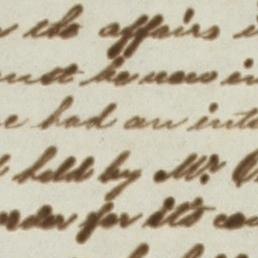 the affairs
must be now in
had an inte
held by Mr. C
order for its co